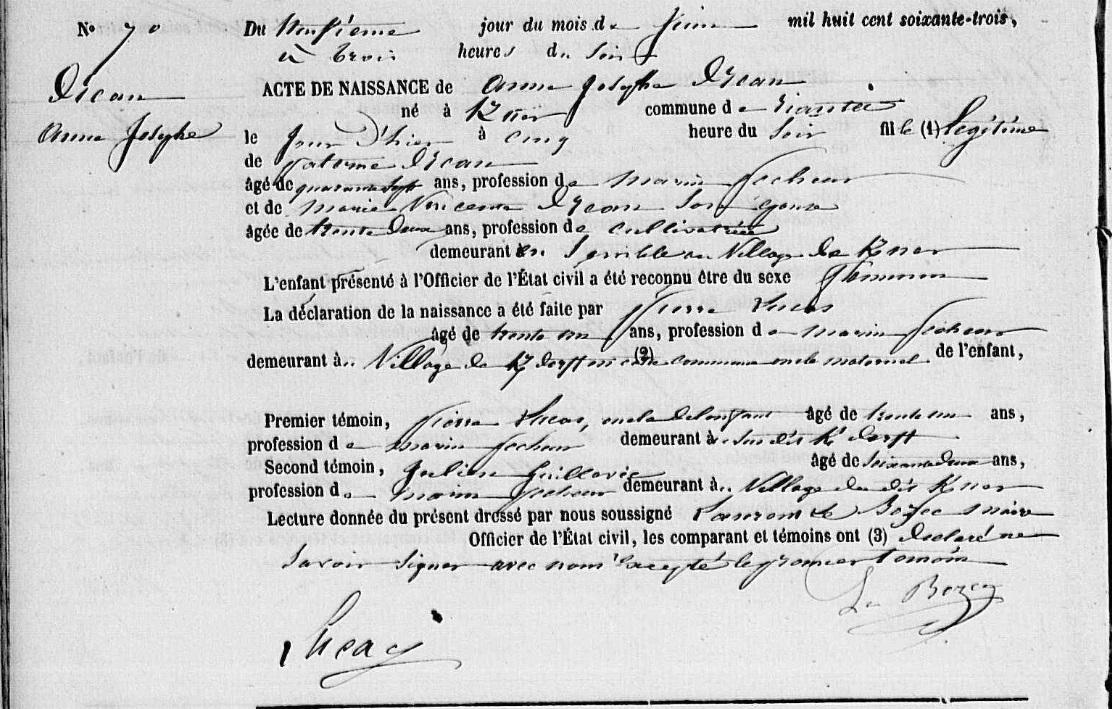 N° 70 Du Neufième jour du mois de Juin mil huit cent soixante-trois,
à trois heures du Soir
Drean ACTE DE NAISSANCE de Anne Josephe Drean
né à Kner commune de Riantec
Anne Josephe le Jour d'hier à cinq heure du Soir fille (1) Légitime
de Paterne Drean
âgé de quarante sept ans, profession de marin pecheur
et de Marie Vincente Drean Son epouse
âgée de trente deux ans, profession de cultivatrice
demeurant Ensemble au Village de Kner
L'enfant présenté à l'Officier de l'État civil a été reconnu être du sexe feminin
La déclaration de la naissance a été faite par Pierre Lucas
âgé de trente un ans, profession de marin pecheur
demeurant à Village de en cette commune oncle maternel (2) de l'enfant,
Premier témoin, Pierre Lucas, oncle de l'enfant âgé de trente un ans,
profession de marin pecheur demeurant à Sus dit
Second témoin, Julien Guillevic âgé de Soixante deux ans,
profession de marin pecheur demeurant à Village du dit Kner
Lecture donnée du présent dressé par nous soussigné Le maire
Officier de l'État civil, les comparant et témoins ont (3) declaré ne
Savoir Signer avec nous excepté le premier temoin
Lucas